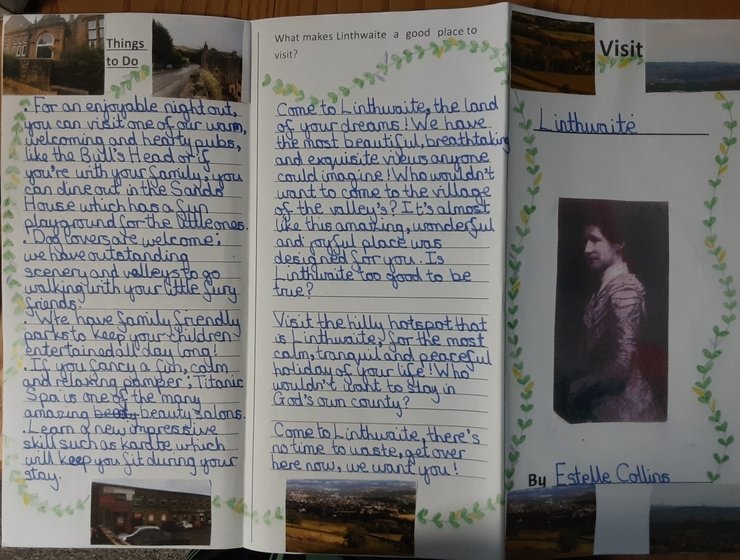 Things
to Do
. For an enjoyable night out,
you can visit one of our warm,
welcoming and hearty pubs,
like the Bull's Head or if
you're with your family, you
can dine out in the Sands
House which has a fun
playground for the little ones.
. Dog lovers are welcome;
we have outstanding
scenery and valleys to go
walking with your little fury
friends.
. We have family friendly
parks to keep your children
entertained all day long!
. If you fancy a fun, calm
and relaxing pamper: Titanic
Spa is one of the many
amazing beauty salons.
. Learn a new impressive
skill such as karate which
will keep you fit during your
stay.
What makes Linthwaite a good place to
visit?
Come to Linthwaite, the land
of your dreams! We have
the most beautiful, breathtaking
and exquisite views anyone
could imagine! Who wouldn't
want to come to the village
of the valley's? It's almost
like this amazing, wonderful
and joyful place was
designed for you. Is
Linthwaite too good to be
true?
Visit the hilly hotspot that
is Linthwaite, for the most
calm, tranquil and peaceful
holiday of your life! Who
wouldn't want to stay in
God's own county?
Come to Linthwaite, there's
no time to waste, get over
here now, we want you!
Visit
Linthwaite
By Estelle Collins